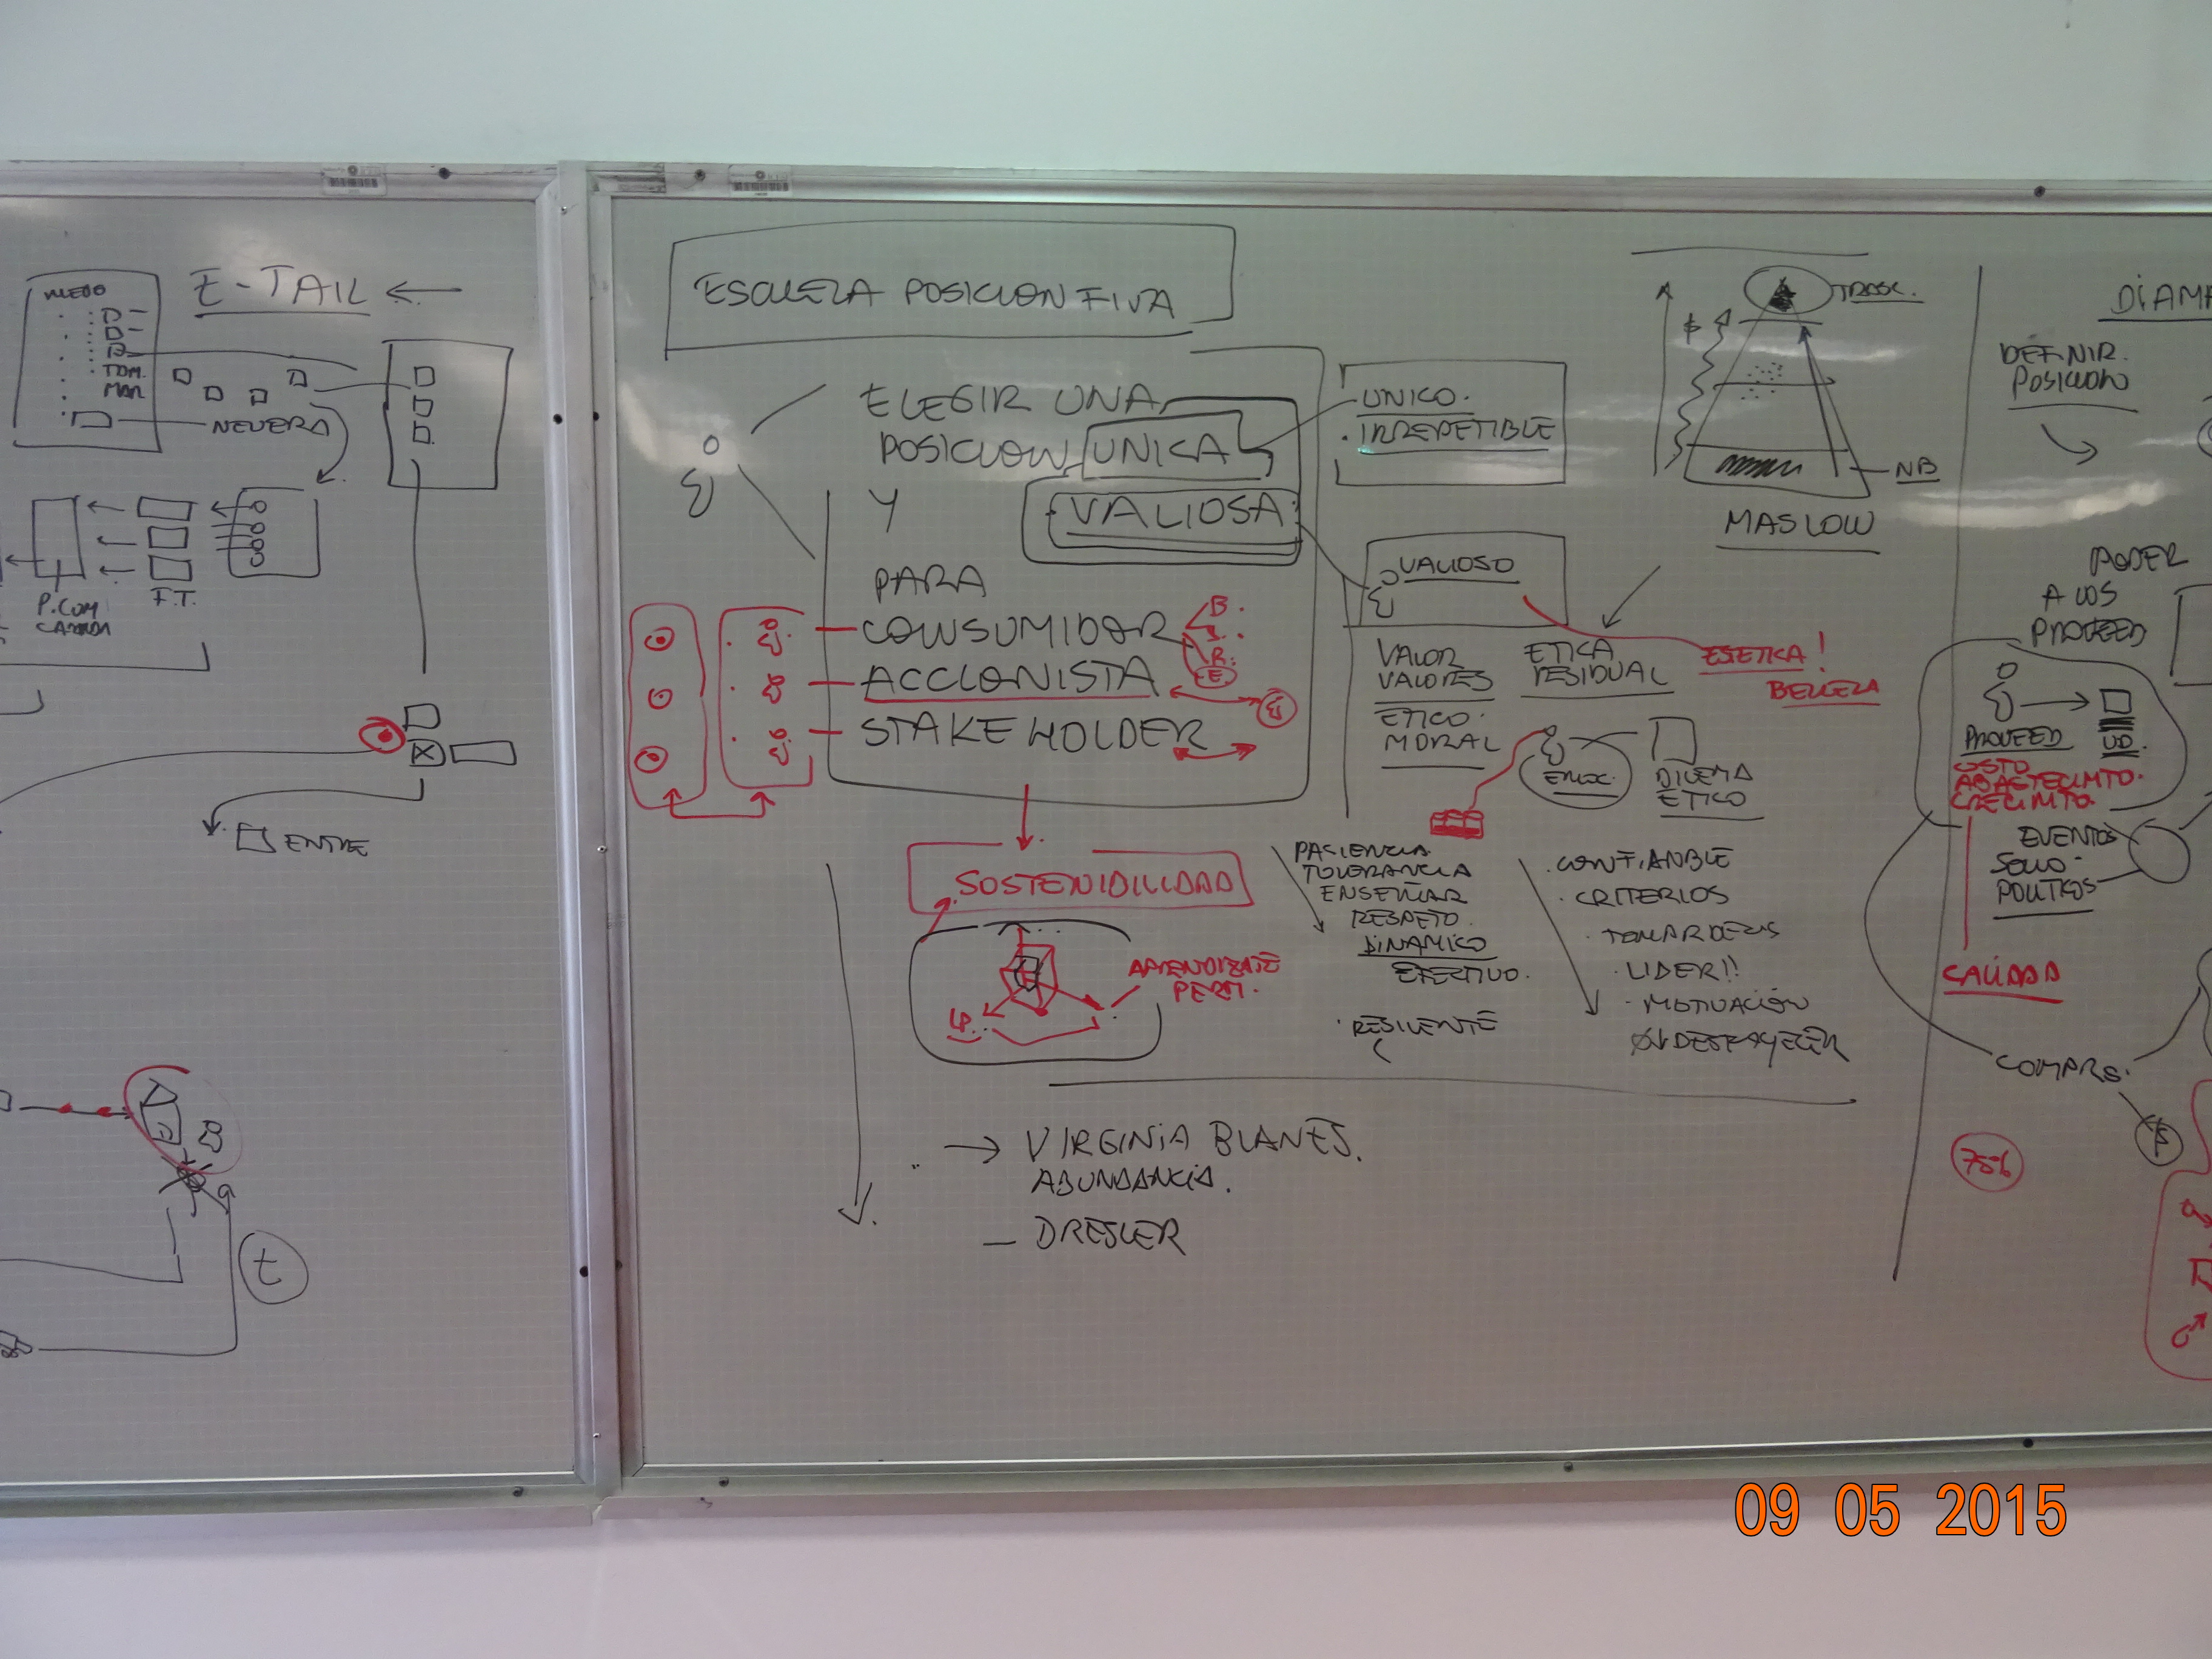 E-TAIL
TOM.
MAR
NEVERA
P.COM
F.T.
ENTRE
t
ESCUELA POSICION FIVA
ELEGIR UNA
POSICION UNICA
Y
VALIOSA
PARA
CONSUMIDOR
B.
S.
R.
E
ACCIONISTA
STAKE HOLDER
SOSTENIBILIDAD
APRENDIZATE
PERM.
LP.
VIRGINIA BLANES.
ABUNDANCIA.
DRESLER
UNICO.
. IRREPETIBLE
VALIOSO
VALOR
VALORES
ETICO.
MORAL
ETICA
RESIDUAL
ESTETICA!
BELLEZA
EMOC.
DILEMA
ETICO
PACIENCIA
TOLERANCIA
ENSEÑAR
RESPETO.
DINAMICO
EFECTIVO.
. RESILENTE
. CONFIANBLE
. CRITERIOS
. TOMAR DECIS
. LIDER!!
. MOTIVACIÓN
DESFAYECER
$
TRASC.
NB
MASLOW
DIAMA
DEFINIR.
POSICION
PODER
A LOS
PROVEED
PROVEED
UD.
COSTO
ABASTECIMTO.
CRECIMTO.
EVENTOS
SOCIO-
POLITICOS
CALIDAD
COMPRS.
$
75%
09 05 2015